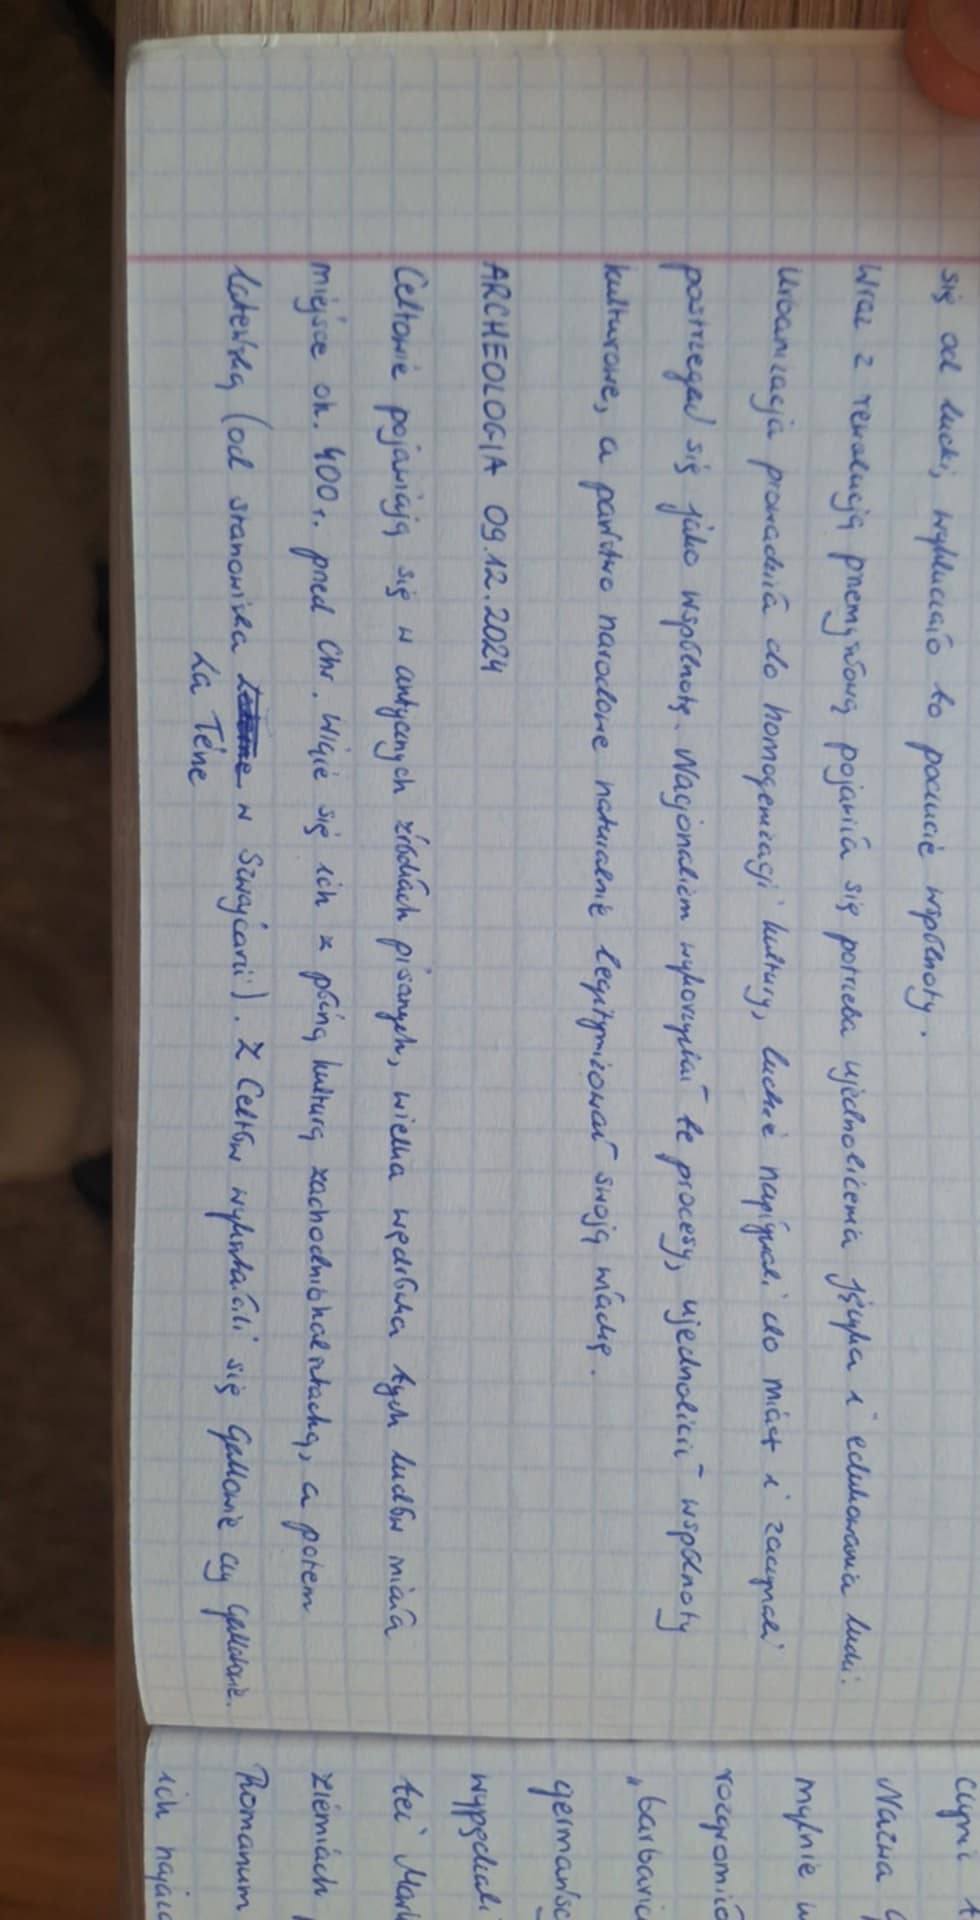 się od ludzi, wykluczało to poczucie wspólnoty.
Wraz z rewolucją przemysłową pojawiła się potrzeba ujednolicenia języka i edukowania ludzi.
Urbanizacja prowadziła do homogenizacji kultury, ludzie napływali do miast i zaczynali
postrzegać się jako wspólnotę. Nacjonalizm wykorzystał te procesy, ujednolicił wspólnoty
kulturowe, a państwo narodowe naturalnie legitymizował swoją władzę.
ARCHEOLOGIA 09.12.2024
Celtowie pojawiają się w antycznych źródłach pisanych, wielka wędrówka tych ludów miała
miejsce ok. 400 r. przed Chr. Wiąże się ich z późną kulturą zachodniohalsztacką, a potem
lateńską (od stanowiska w Szwajcarii). Z Celtów wykształcili się Gallowie czy Galatowie.
La Téne
czyni
Ważna
mylnie w
rozgromić
"barbaric
germańsc
wypędzali
też Mark
ziemiach
Romanum
ich najaz